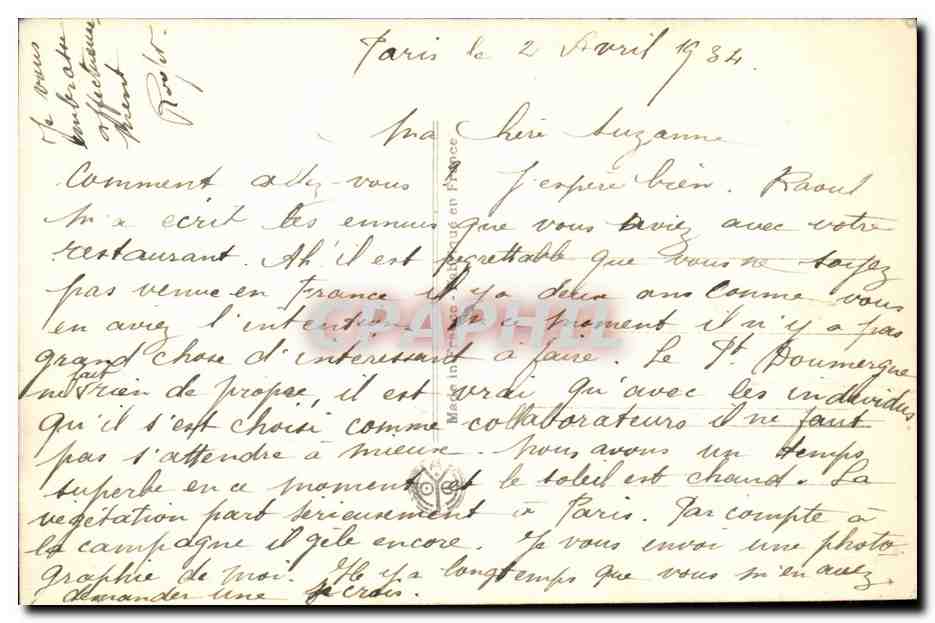 Paris le 2 Avril 1934.
Ma Chère Suzanne
Comment allez-vous J'espère bien. Raoul
m'a écrit les ennuis que vous aviez avec votre
restaurant. Ah il est regrettable que vous ne soyez
pas venue en France il y a deux ans comme vous
en aviez l'intention. En ce moment il n'y a pas
grand chose d'intéressant à faire. Le Pt Doumergue
ne fait rien de propre, il est vrai qu'avec les individus
qu'il s'est choisi comme collaborateurs il ne faut
pas s'attendre à mieux. Nous avons un temps
superbe en ce moment et le soleil est chaud. La
végétation part sérieusement à Paris. Par compte à
la campagne il gèle encore. Je vous envoi une photo
graphie de moi. Il y a longtemps que vous m'en avez
demander une je crois.
Je vous
embrasse
affectueuse
ment
Made in France - Fabriqué en France
CPAPHIL